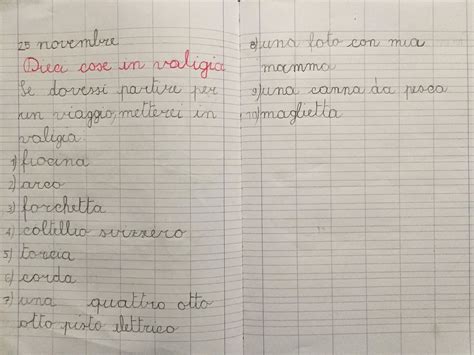 25 novembre
Dieci cose in valigia
Se dovessi partire per
un viaggio, metterei in
valigia.
1) fiocina
2) arco
3) forchetta
4) coltellio svizzero
5) torcia
6) corda
7) una quattro otto
otto pisto elettrico
8) una foto con mia
mamma
9) una canna da pesca
10) maglietta